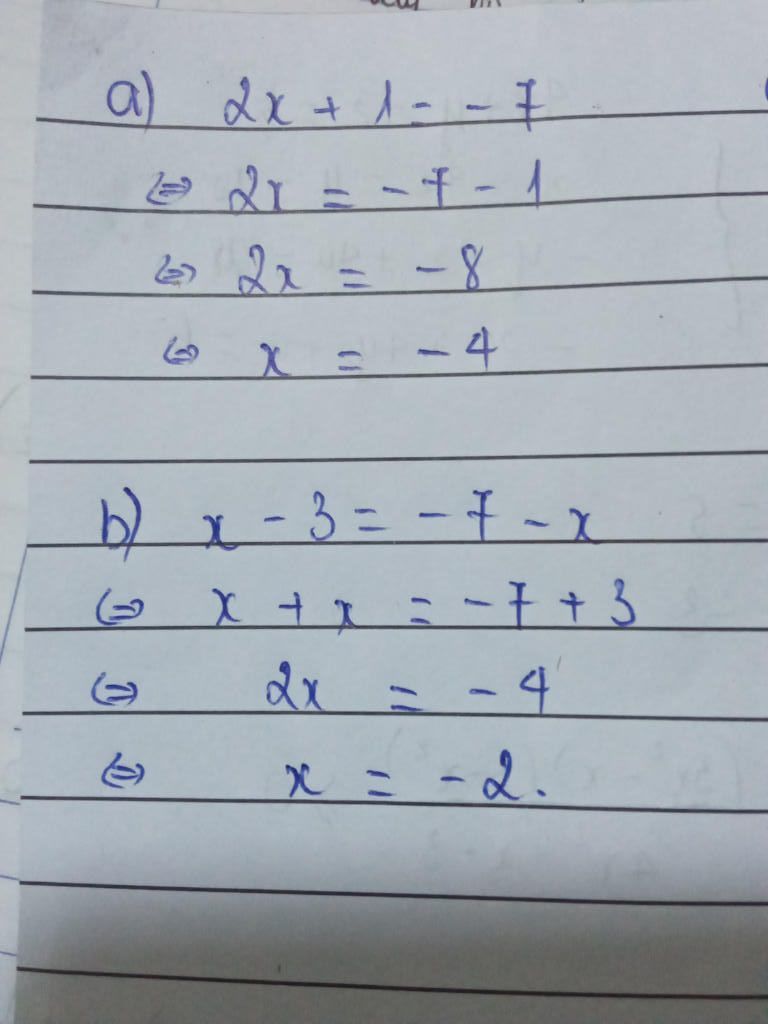 a) 2x + 1 = - 7
⇔ 2x = - 7 - 1
⇔ 2x = - 8
⇔ x = - 4
b) x - 3 = - 7 - x
⇔ x + x = - 7 + 3
⇔ 2x = - 4
⇔ x = - 2.